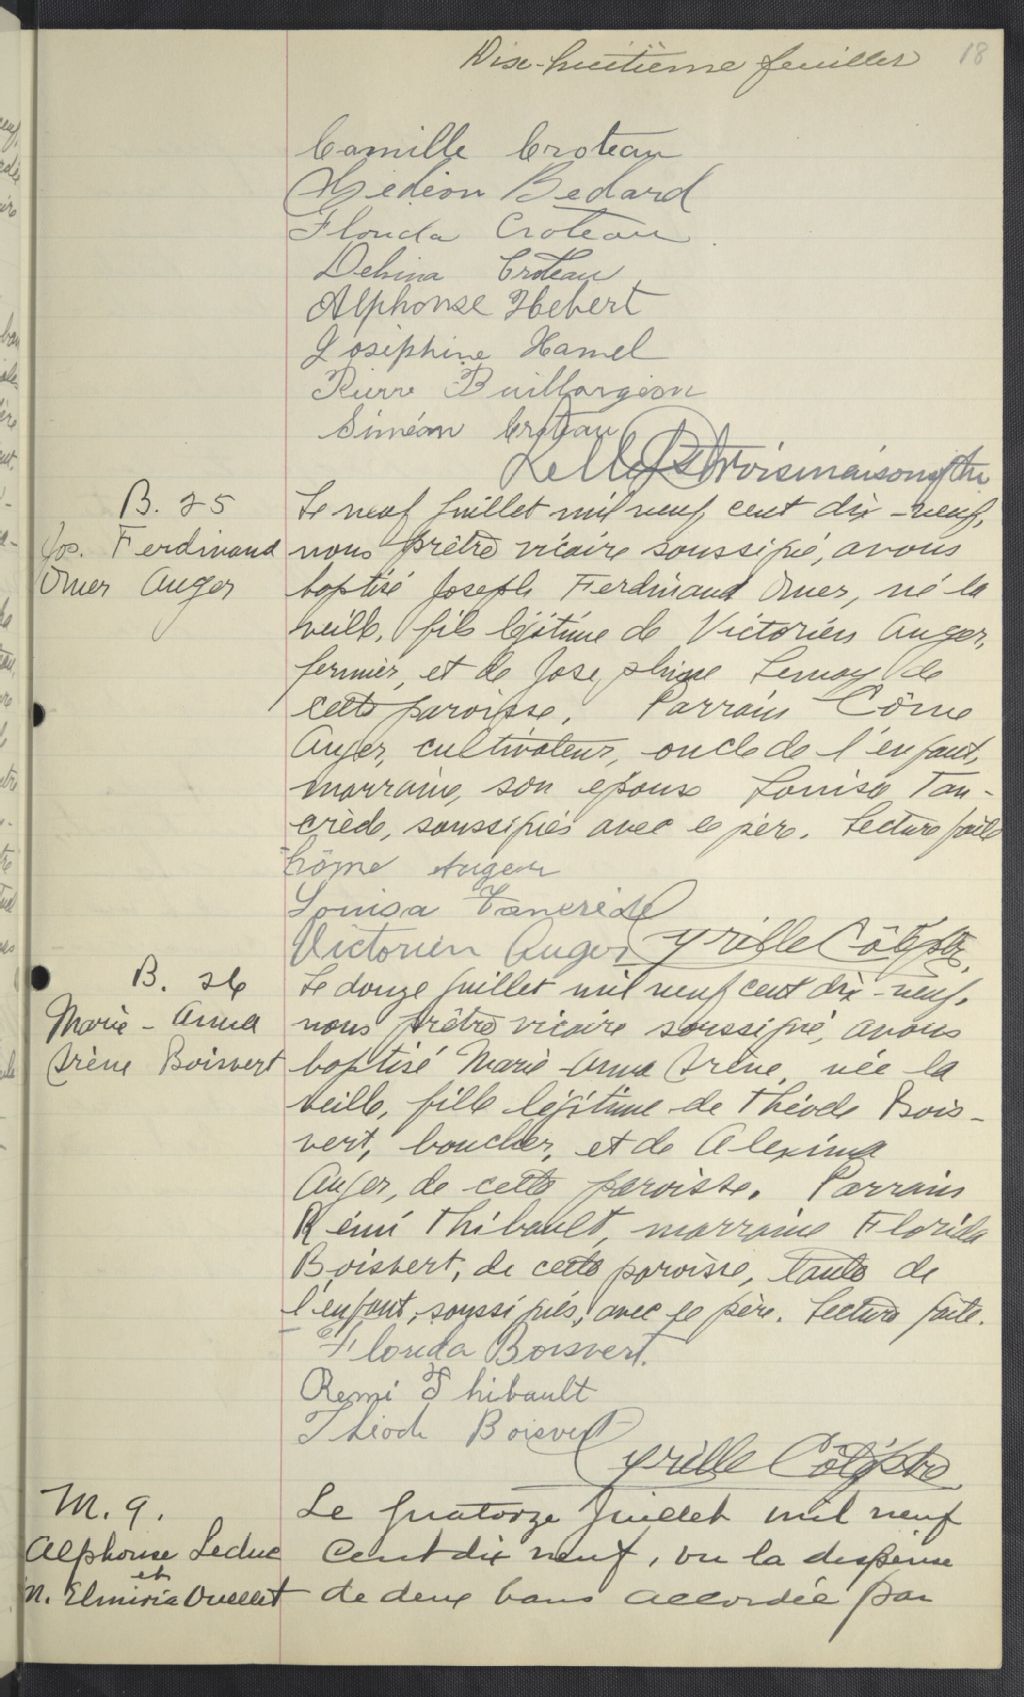 Dix-huitième feuillet 18
Camille Croteau
Gédéon Bedard
Florida Croteau
Delvina Croteau
Alphonse Hebert
Joséphine Hamel
Pierre Baillargeon
Siméon Croteau
Troismaisons ptre
B. 25
Jos. Ferdinand
Omer Auger
Le neuf juillet mil neuf cent dix-neuf,
nous prêtre vicaire soussigné, avons
baptisé Joseph Ferdinand Omer, né la
veille, fils légitime de Victorien Auger,
fermier, et de Josephine Lemay de
cette paroisse. Parrain Côme
Auger, cultivateur, oncle de l'enfant,
marraine, son epouse Louisa Tan-
crède, soussignés avec le père. Lecture faite
Côme Auger
Louisa Tancrède
Victorien Auger Cyrille Côté ptre.
B. 26
Marie-Anna
Irène Boisvert
Le douze juillet mil neuf cent dix-neuf,
nous prêtre vicaire soussigné, avons
baptisé Marie Anna Irène, née la
veille, fille légitime de Théode Bois-
vert, boucher, et de Alexina
Auger, de cette paroisse. Parrain
Rémi Thibault, marraine Florida
Boisvert, de cette paroisse, tante de
l'enfant, soussignés, avec le père. Lecture faite.
Florida Boisvert.
Remi Thibault
Théode Boisvert
Cyrille Côté ptre
M. 9.
Alphonse Leduc
et
M. Elmiria Ouellet
Le quatorze juillet mil neuf
cent dix neuf, vu la dispense
de deux bans accordée par